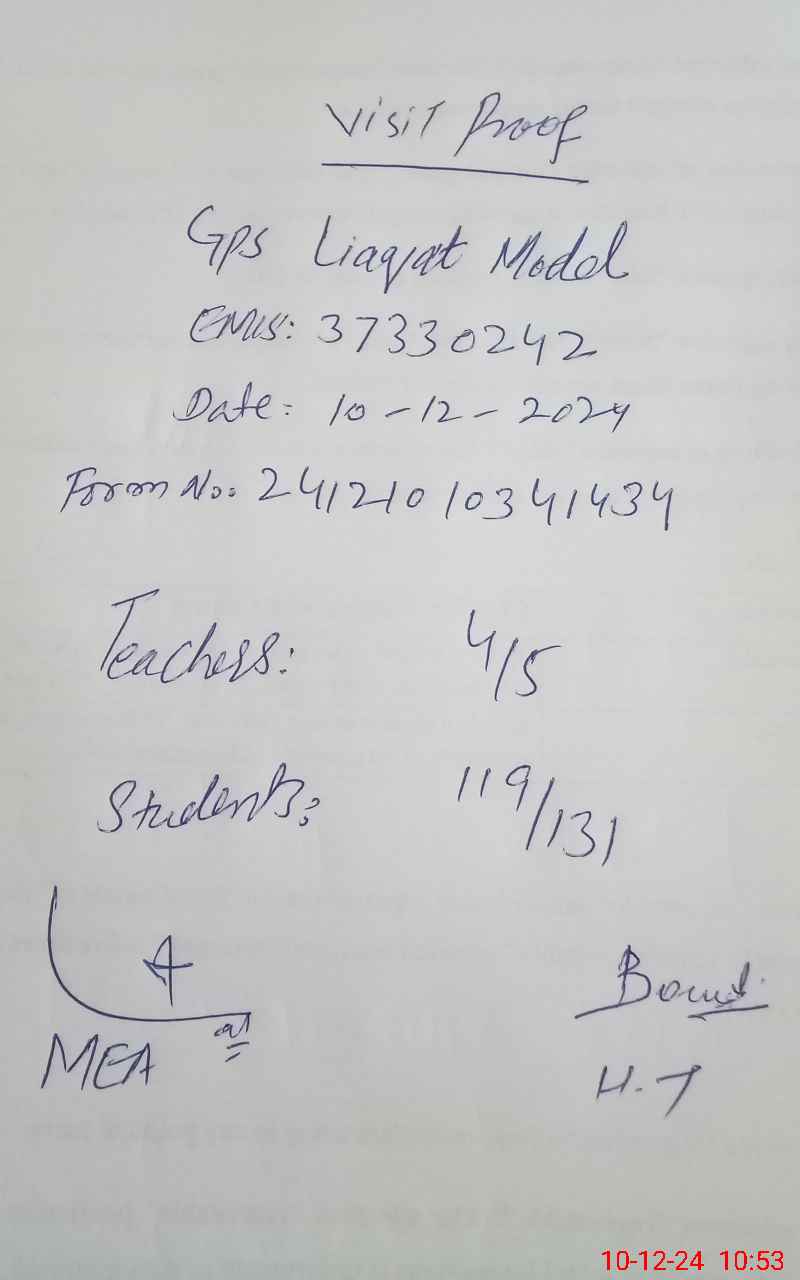 Visit Proof
GPS Liaqat Model
EMIS: 37330242
Date: 10-12-2024
Form No: 24121010341434
Teachers: 4/5
Students: 119/131
MEA
H.T
10-12-24 10:53